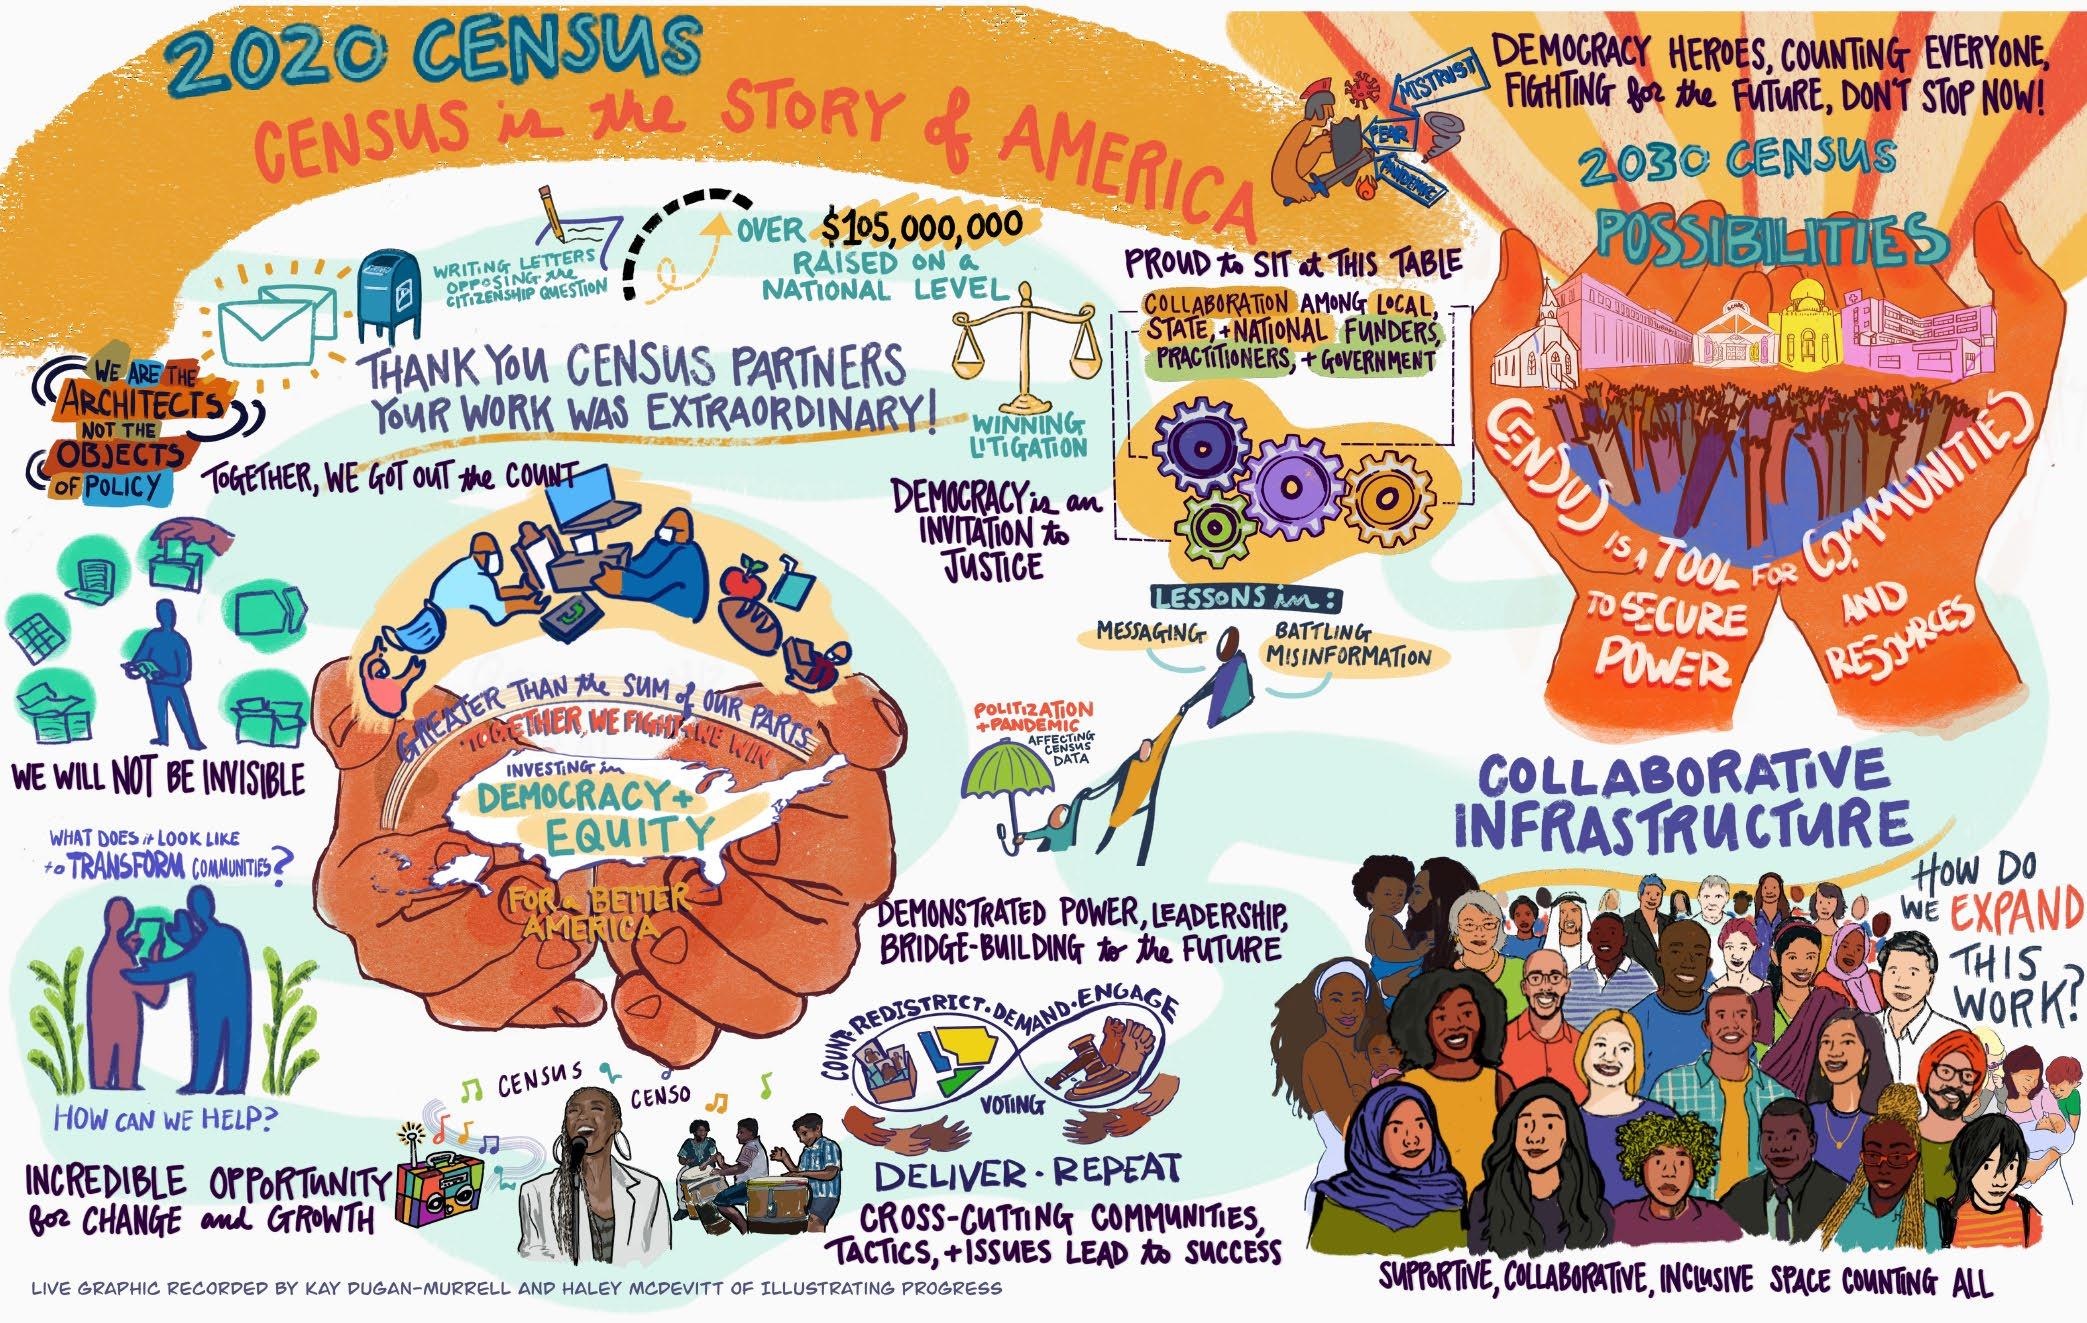 2020 CENSUS
CENSUS is the STORY of AMERICA
MISTRUST
FEAR
PANDEMIC
DEMOCRACY HEROES, COUNTING EVERYONE,
FIGHTING for the FUTURE, DON'T STOP NOW!
2030 CENSUS
POSSIBILITIES
WRITING LETTERS
OPPOSING the
CITIZENSHIP QUESTION
OVER $105,000,000
RAISED ON a
NATIONAL LEVEL
THANK YOU CENSUS PARTNERS
YOUR WORK WAS EXTRAORDINARY!
WINNING
LITIGATION
PROUD to SIT at THIS TABLE
COLLABORATION AMONG LOCAL,
STATE, + NATIONAL FUNDERS,
PRACTITIONERS, + GOVERNMENT
WE ARE THE
ARCHITECTS
NOT THE
OBJECTS
OF POLICY
TOGETHER, WE GOT OUT the COUNT
DEMOCRACY is an
INVITATION to
JUSTICE
SCHOOL
CENSUS IS A TOOL FOR COMMUNITIES
TO SECURE
POWER
AND
RESOURCES
LESSONS in:
MESSAGING
BATTLING
MISINFORMATION
POLITIZATION
+ PANDEMIC
AFFECTING
CENSUS
DATA
WE WILL NOT BE INVISIBLE
GREATER THAN the SUM of OUR PARTS
TOGETHER, WE FIGHT + WE WIN
INVESTING in
DEMOCRACY +
EQUITY
FOR a BETTER
AMERICA
WHAT DOES it LOOK LIKE
to TRANSFORM COMMUNITIES?
HOW CAN WE HELP?
INCREDIBLE OPPORTUNITY
for CHANGE and GROWTH
CENSUS
CENSO
DEMONSTRATED POWER, LEADERSHIP,
BRIDGE-BUILDING to the FUTURE
COUNT · REDISTRICT · DEMAND · ENGAGE
VOTING
DELIVER · REPEAT
CROSS-CUTTING COMMUNITIES,
TACTICS, + ISSUES LEAD to SUCCESS
COLLABORATIVE
INFRASTRUCTURE
HOW DO
WE EXPAND
THIS
WORK?
SUPPORTIVE, COLLABORATIVE, INCLUSIVE SPACE COUNTING ALL
LIVE GRAPHIC RECORDED BY KAY DUGAN-MURRELL AND HALEY MCDEVITT OF ILLUSTRATING PROGRESS